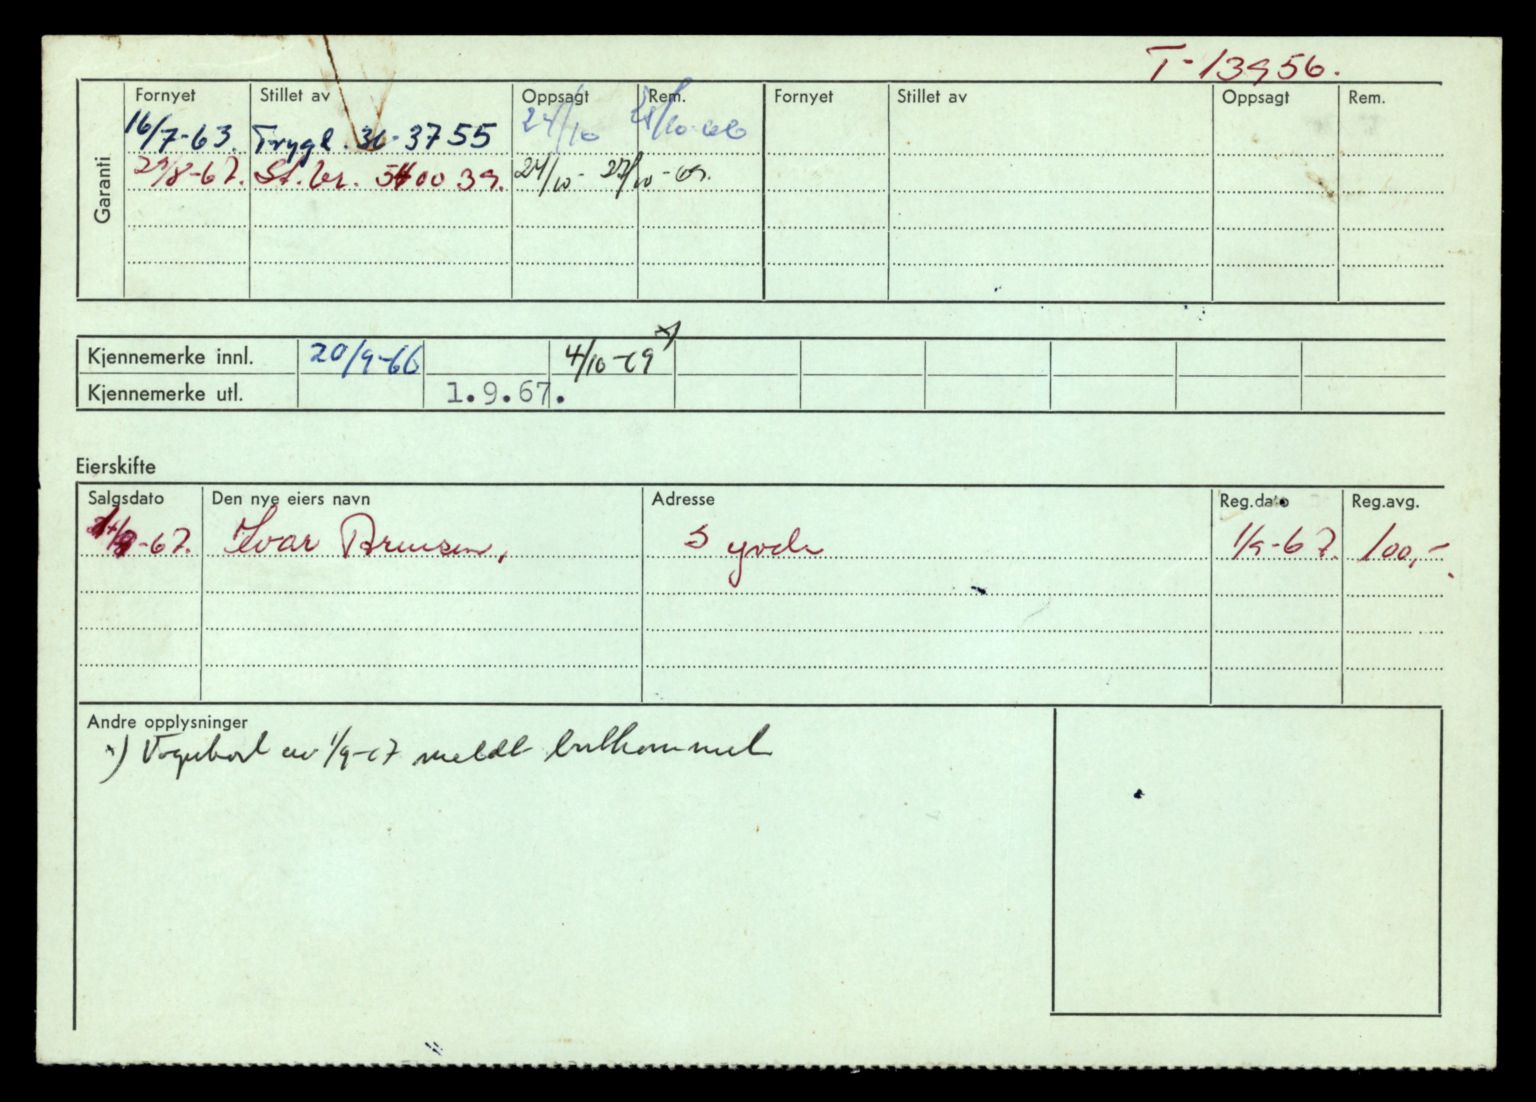 T-13956.
Fornyet Stillet av Oppsagt Rem. Fornyet Stillet av Oppsagt Rem.
Garanti
16/7-63. Trygd. 36-3755 24/10
29/8-67. St.br. 540039. 24/10- 27/10-69.
Kjennemerke innl. 20/9-66 4/10-69 x)
Kjennemerke utl. 1.9.67.
Eierskifte
Salgsdato Den nye eiers navn Adresse Reg.dato Reg.avg.
-67. Ivar Bruusen, Syvde 1/9-67. 100,-
Andre opplysninger
x) Vognkort av 1/9-67 meldt bortkommet